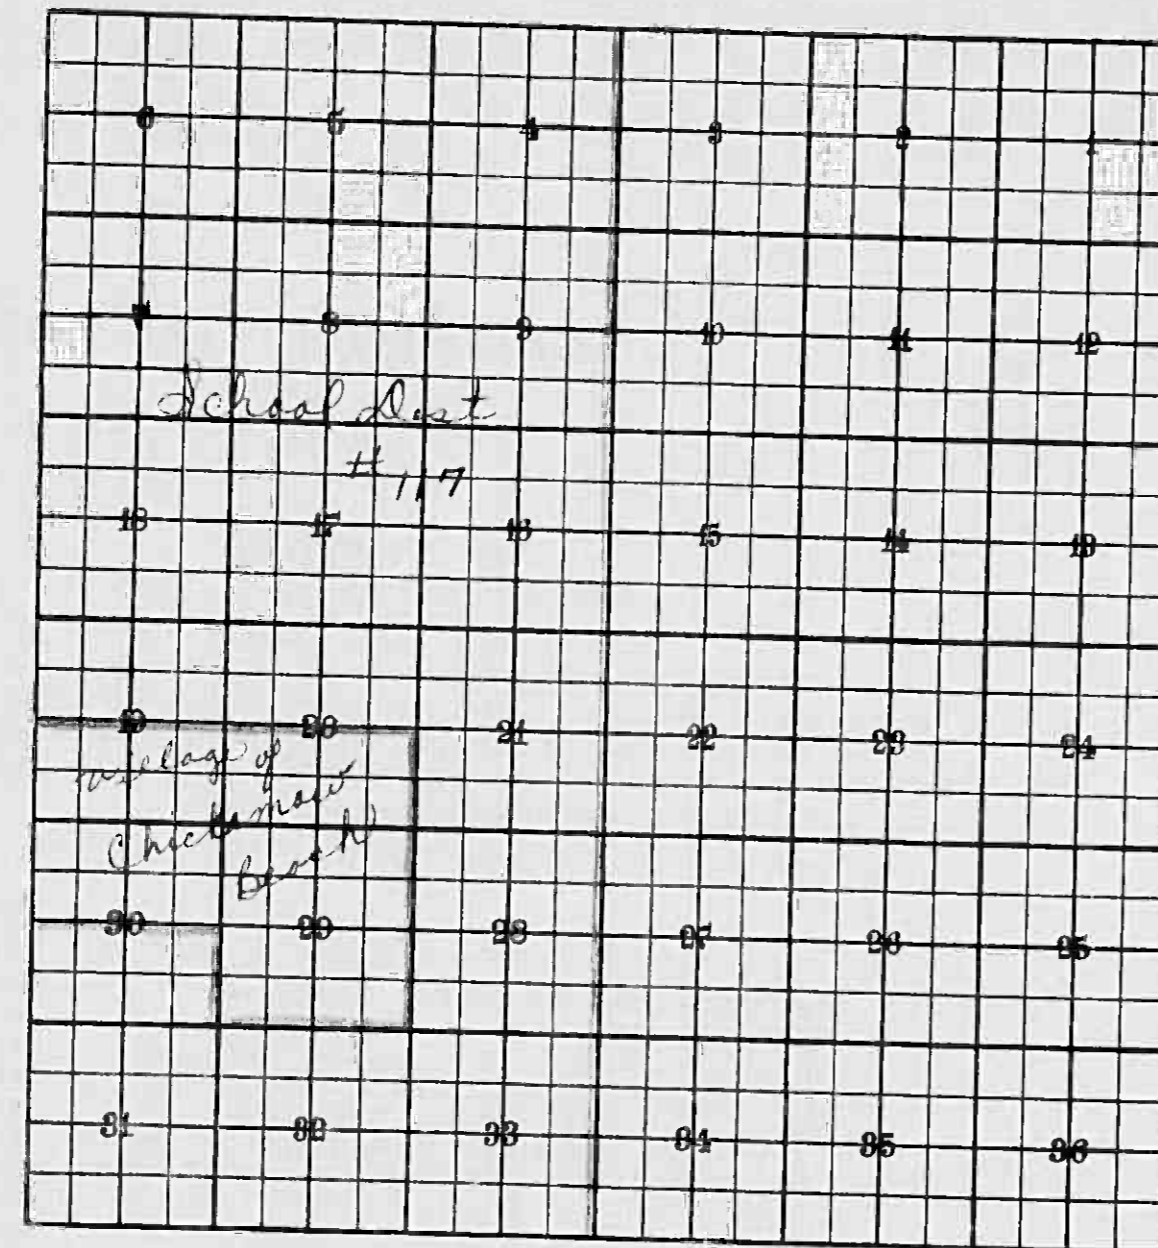 6 5 4 3 2
7 8 9 10 11 12
School Dist
# 117
18 17 16 15 14 13
19 20 21 22 23 24
Village of
Beach
30 29 28 27 26 25
31 32 33 34 35 36